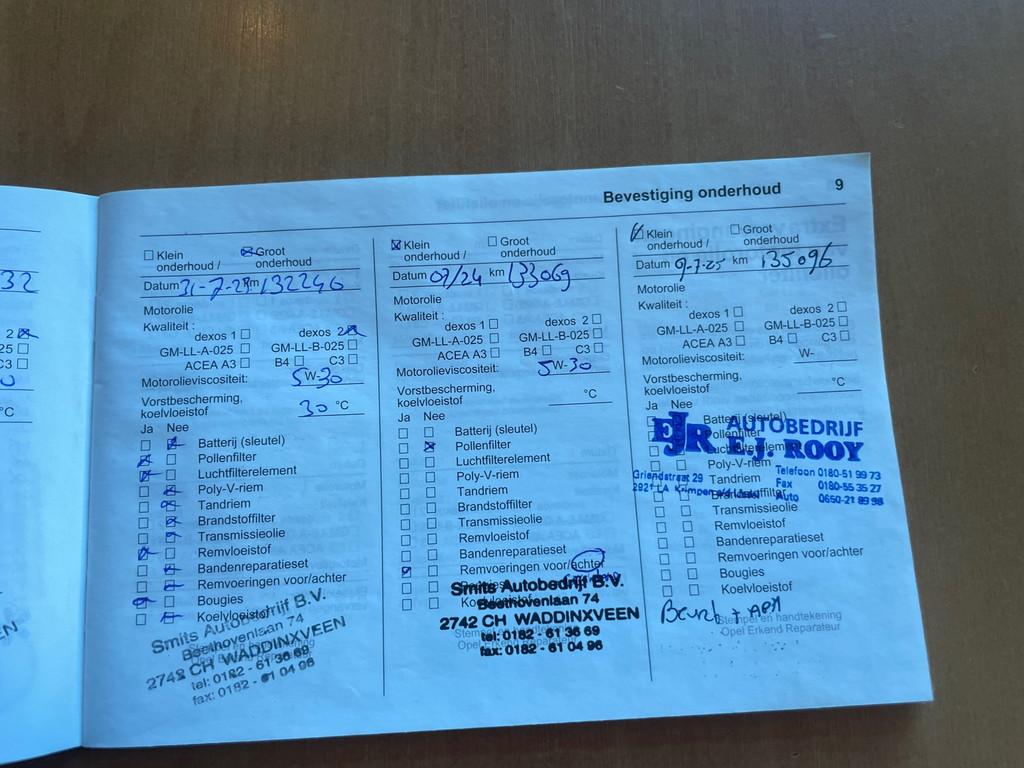 32
2
25
C3
°C
Bevestiging onderhoud 9
Klein onderhoud / Groot onderhoud
Datum 31-7-23 km 132246
Motorolie
Kwaliteit :
dexos 1 dexos 2
GM-LL-A-025 GM-LL-B-025
ACEA A3 B4 C3
Motorolieviscositeit: 5W-30
Vorstbescherming,
koelvloeistof 30 °C
Ja Nee
Batterij (sleutel)
Pollenfilter
Luchtfilterelement
Poly-V-riem
Tandriem
Brandstoffilter
Transmissieolie
Remvloeistof
Bandenreparatieset
Remvoeringen voor/achter
Bougies
Koelvloeistof
Smits Autobedrijf B.V.
Beethovenlaan 74
2742 CH WADDINXVEEN
tel: 0182 - 61 36 69
fax: 0182 - 61 04 96
Klein onderhoud / Groot onderhoud
Datum 07/24 km 133069
Motorolie
Kwaliteit :
dexos 1 dexos 2
GM-LL-A-025 GM-LL-B-025
ACEA A3 B4 C3
Motorolieviscositeit: 5W-30
Vorstbescherming,
koelvloeistof °C
Ja Nee
Batterij (sleutel)
Pollenfilter
Luchtfilterelement
Poly-V-riem
Tandriem
Brandstoffilter
Transmissieolie
Remvloeistof
Bandenreparatieset
Remvoeringen voor/achter
Bougies
Koelvloeistof
Smits Autobedrijf B.V.
Beethovenlaan 74
2742 CH WADDINXVEEN
tel: 0182 - 61 36 69
fax: 0182 - 61 04 96
Klein onderhoud / Groot onderhoud
Datum 9-7-25 km 135096
Motorolie
Kwaliteit :
dexos 1 dexos 2
GM-LL-A-025 GM-LL-B-025
ACEA A3 B4 C3
Motorolieviscositeit: W-
Vorstbescherming,
koelvloeistof °C
Ja Nee
Batterij (sleutel)
Pollenfilter
Luchtfilterelement
Poly-V-riem
Tandriem
Brandstoffilter
Transmissieolie
Remvloeistof
Bandenreparatieset
Remvoeringen voor/achter
Bougies
Koelvloeistof
EJR AUTOBEDRIJF
E.J. ROOY
Griendstraat 29 Telefoon 0180-51 99 73
2921 LA Krimpen a/d IJssel Fax 0180-55 35 27
Auto 0650-21 89 98
Beurt + APK
Stempel en handtekening
Opel Erkend Reparateur